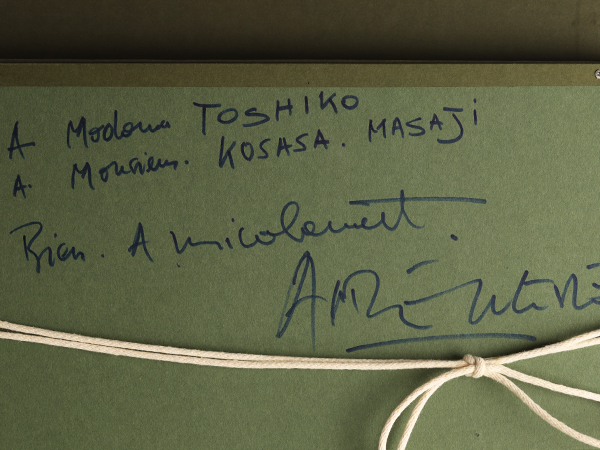 A Madame TOSHIKO
A. Monsieur. KOSASA. MASAJi
Bien. Amicalement.